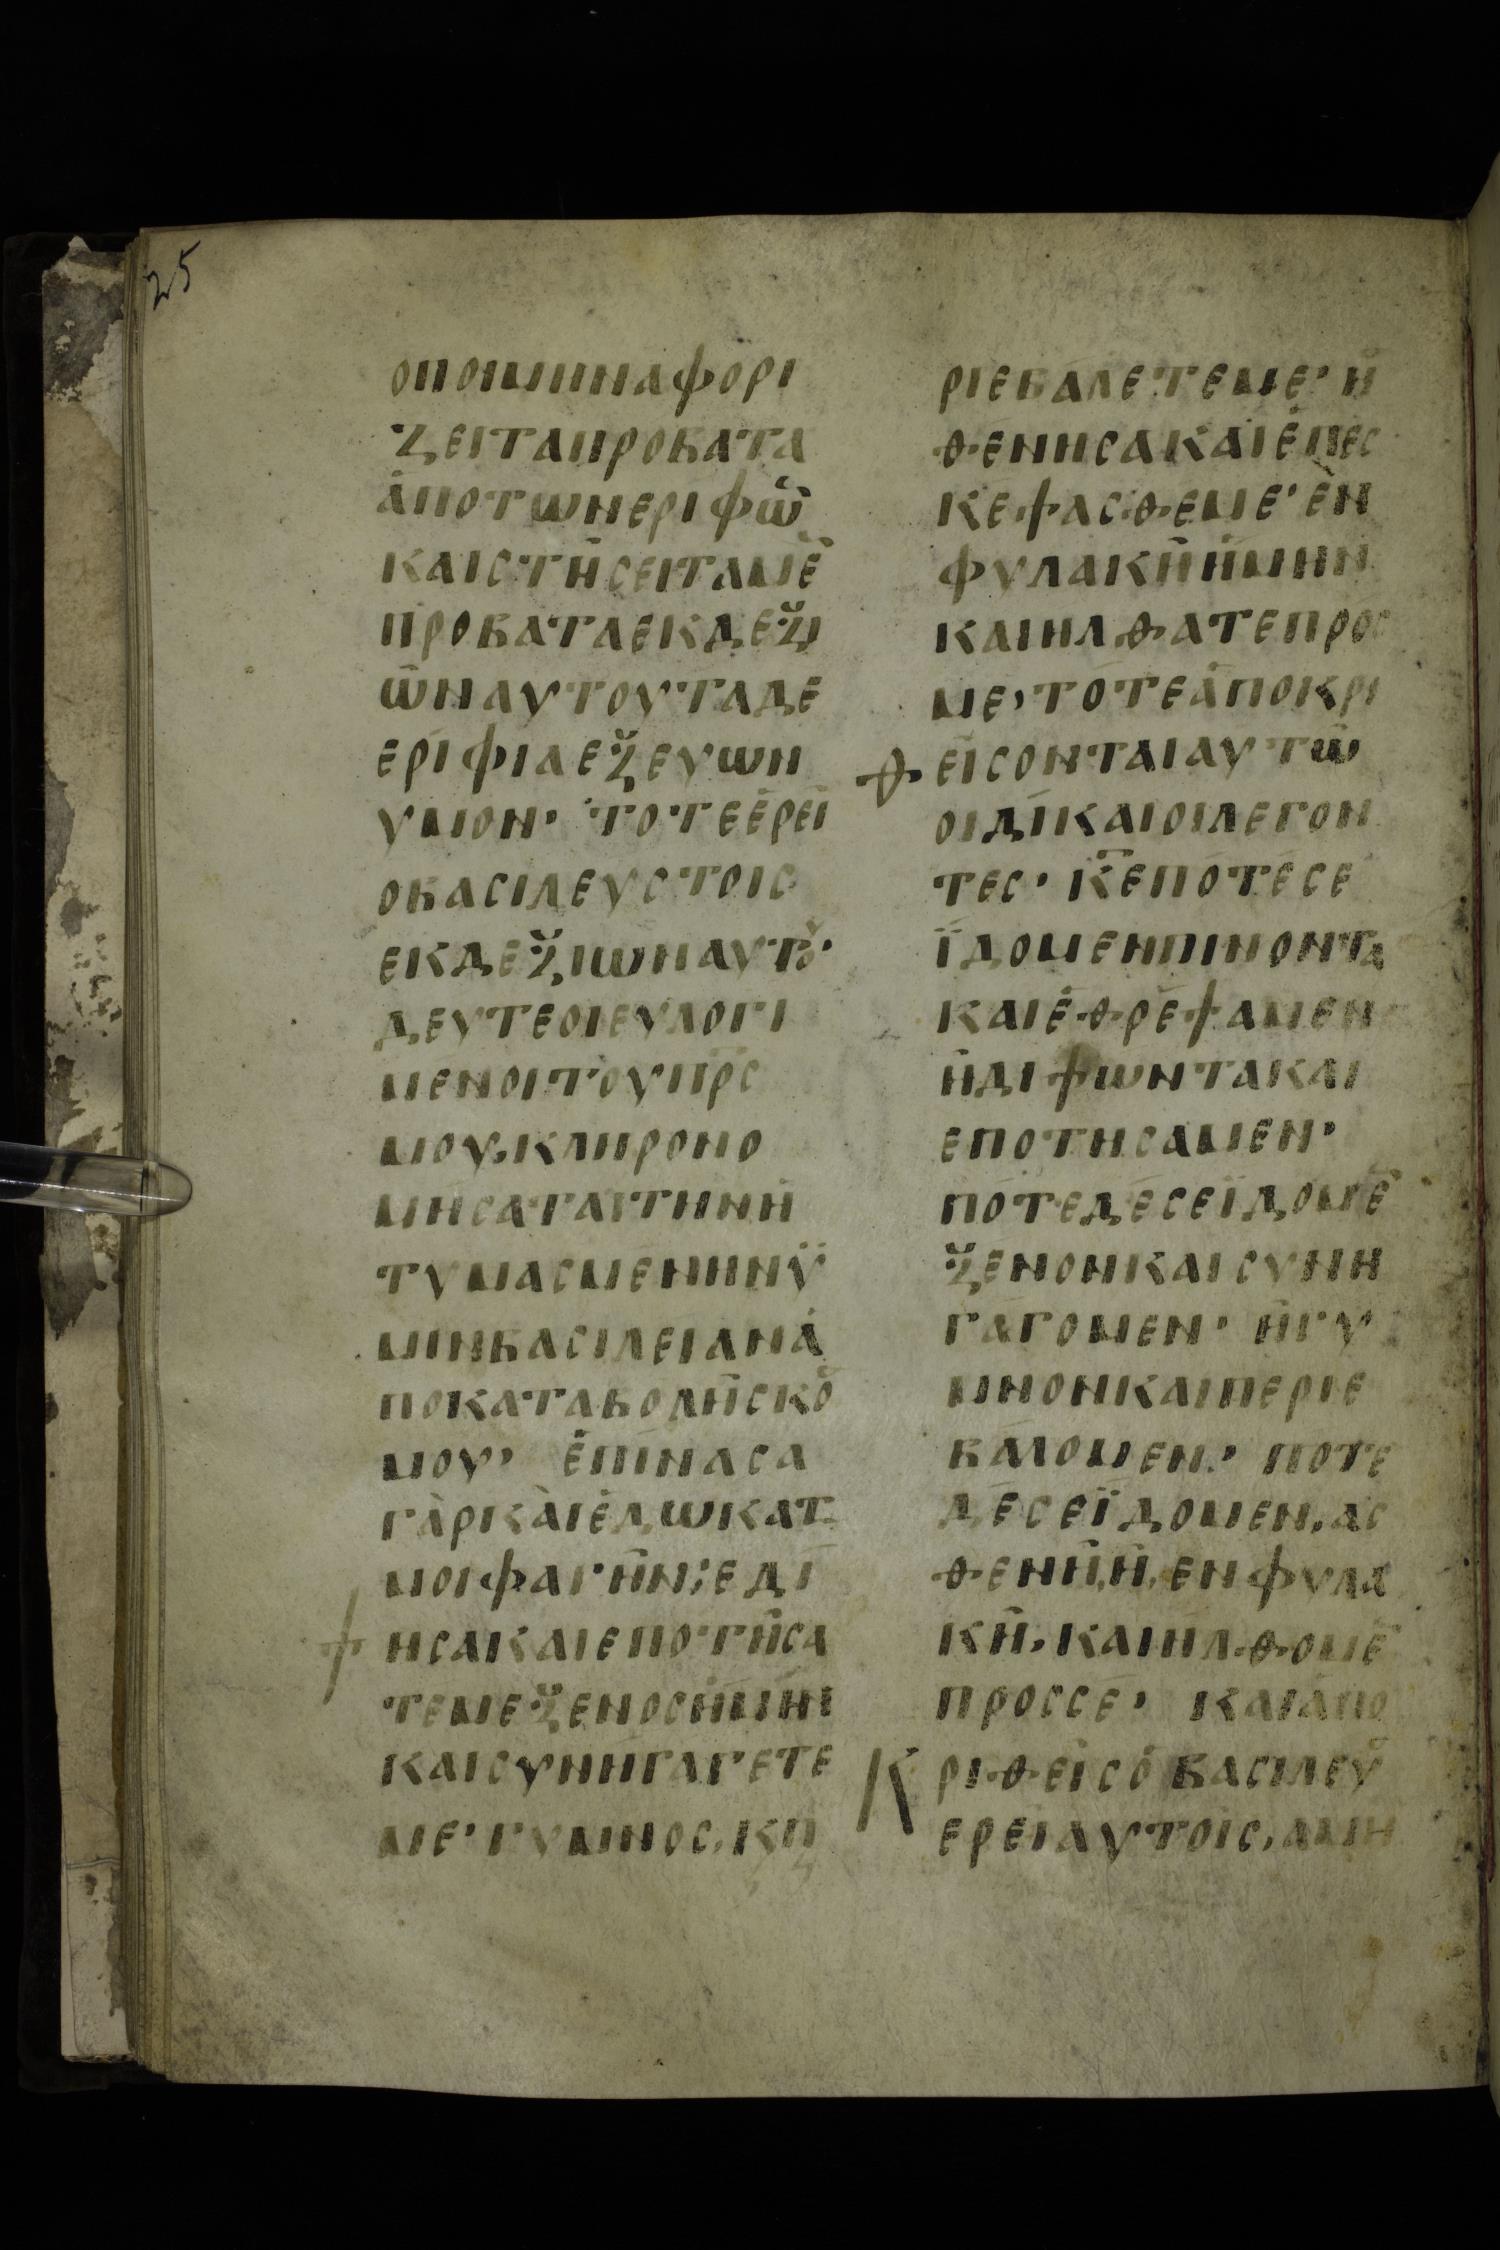 25
οποιμιηναφορι
ζειταπροβατα
ἀποτωνεριφῶ
καιστήσειταμἐ
προβαταεκδεξι
ῶναυτουταδε
ερίφιαεξευων
υμον· τοτεἐρεῖ
οβασιλευστοις
εκδεξιωναυτȣ·
δευτεοιευλογι
μενοιτουπρς
μου,κληρονο
μήσαταιτηνή
τυμασμενηνϋ
μινβασιλειανἀ
ποκαταβολήσκὀ
μου· ἐπίνασα
γὰρκὰιἐδωκατ
μοιφαγήν;εδί
ψησακαιεποτήσα
τεμεξενοσήμην
καισυνήγαγετε
με·γυμνος,κπ
ριεβαλετεμε·ή
θενησακαιἐπες
κεψασθεμε·ἐν
φυλακήήμην
καιηλθατεπρος
με,τοτεἀποκρι
θεῖσονταιαυτῶ
οιδίκαιοιλεγον
τες· κεποτεσε
ϊδομενπινοντα
καιἐθρεψαμεν
ήδιψωντακαι
εποτησαμεν·
ποτεδεσεϊδομἐ
ξενονκαισυνη
γαγομεν· ήγυ
μνονκαιπεριε
βαλομεν· ποτε
δεσεϊδομεν,ας
θενή,ή,ενφυλα
κή,καιηλθομἐ
προσσε· καιἀπο
Κριθεὶσὀβασιλεύ
ερειαυτοις,αμην